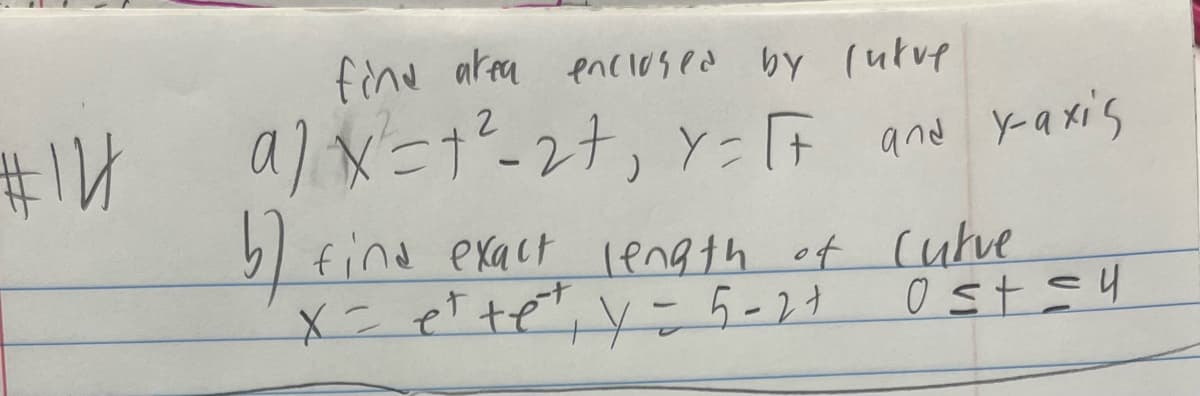 find area enclosed by curve
#14 a) x²=t²-2t, y=√t and y-axis
b) find exact length of curve
x = e^t + e^-t, y = 5-2t 0≤t≤4